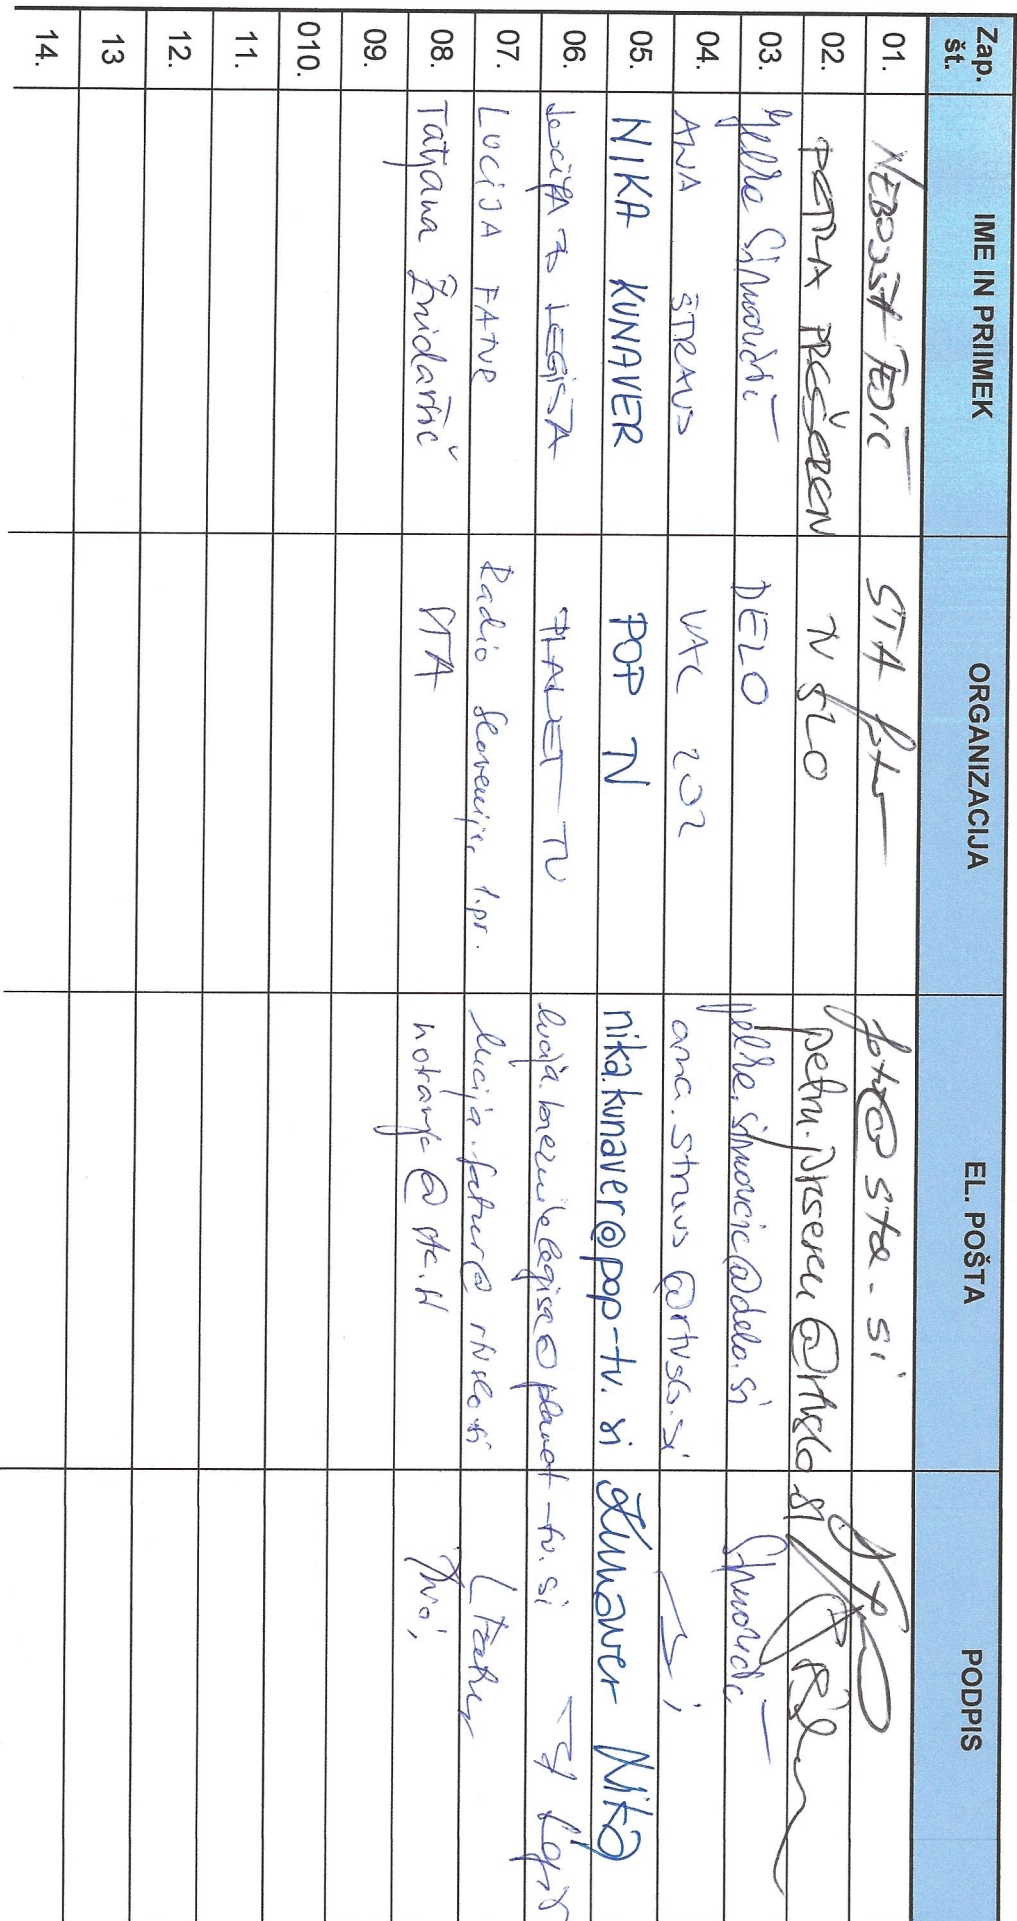 Zap. št. IME IN PRIIMEK ORGANIZACIJA EL. POŠTA PODPIS
01. NEBOJŠA TEJIĆ STA foto foto@sta.si
02. PETRA PREŠEREN TV SLO petra.preseren@rtvslo.si
03. Jelka Simončić DELO Simončić
04. ANA ŠTRAUS VAL 202 ana.straus@rtvslo.si
05. NIKA KUNAVER POP TV nika.kunaver@pop-tv.si Kunaver Nika
06. LEGIŠA PLANET TV
07. LUCIJA FATUR Radio Slovenija, 1.pr. lucija.fatur@rtvslo.si LFatur
08. Tatjana Žnidaršič STA notranja@sta.si
09.
010.
11.
12.
13
14.